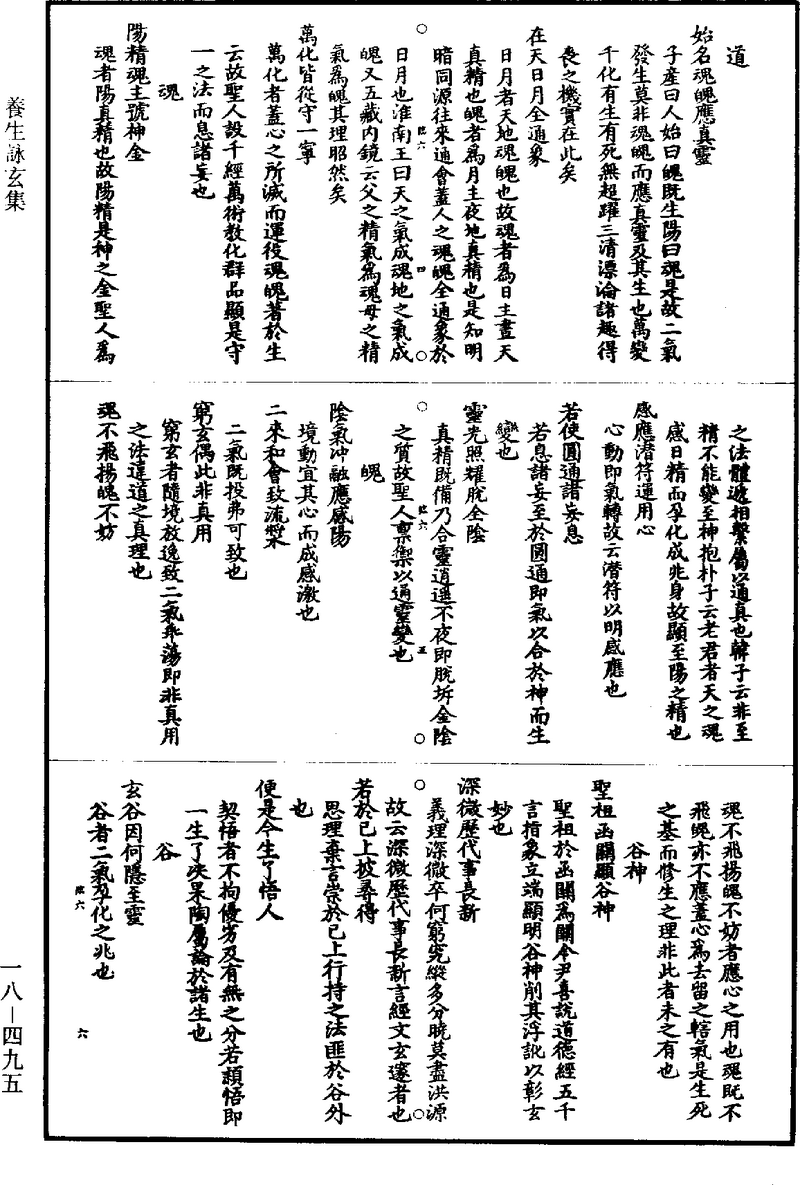 道
始名魂魄應真靈
子產曰人始曰魄既生陽曰魂是故二氣
發生莫非魂魄而應真靈及其生也萬變
千化有生有死無超躍三清漂淪諸趣得
喪之機實在此矣
在天日月全通象
日月者天地魂魄也故魂者爲日主晝天
真精也魄者爲月主夜地真精也是知明
暗同源往來通會蓋人之魂魄全通象於
日月也淮南王曰天之氣成魂地之氣成
魄又五藏內鏡云父之精氣爲魂母之精
氣爲魄其理昭然矣
萬化皆從守一寧
萬化者蓋心之所滅而運役魂魄著於生
云故聖人設千經萬術教化群品顯是守
一之法而息諸妄也
魂
陽精魂主號神金
魂者陽真精也故陽精是神之金聖人爲
之法體遞相繫屬以通真也韓子云非至
精不能變至神抱朴子云老君者天之魂
感日精而孕化成兆身故顯至陽之精也
感應潛符運用心
心動即氣轉故云潛符以明感應也
若使圓通諸妄息
若息諸妄至於圓通即氣以合於神而生
變也
靈光照耀脫全陰
真精既備乃合靈道逍遙不夜即脫坼金陰
之質故聖人禀禦以通靈變也
魄
陰氣沖融應感陽
境動宜其心而成感激也
二來和會致流槳
二氣既投弗可致也
窮玄偶此非真用
窮玄者隨境放逸致二氣乖蕩即非真用
之法違道之真理也
魂不飛揚魄不妨
魂不飛揚魄不妨者應心之用也魂既不
飛魄亦不應蓋心爲去留之轄氣是生死
之基而修生之理非此者未之有也
谷神
聖祖函關顯谷神
聖祖於函關爲關令尹喜說道德經五千
言指象立端顯明谷神削其浮訛以彰玄
妙也
深微歷代事長新
義理深微卒何窮究縱多分曉莫盡洪源
故云深微歷代事長新言經文玄邃者也
若於已上披尋得
思理棄言崇於已上行持之法匪於谷外
也
便是今生了悟人
契悟者不拘優劣及有無之分若頓悟即
一生了決果陶屬論於諸生也
谷
玄谷因何隱至靈
谷者二氣孕化之兆也
臨六
四
臨六
五
臨六
六
養生詠玄集
一八－四九五